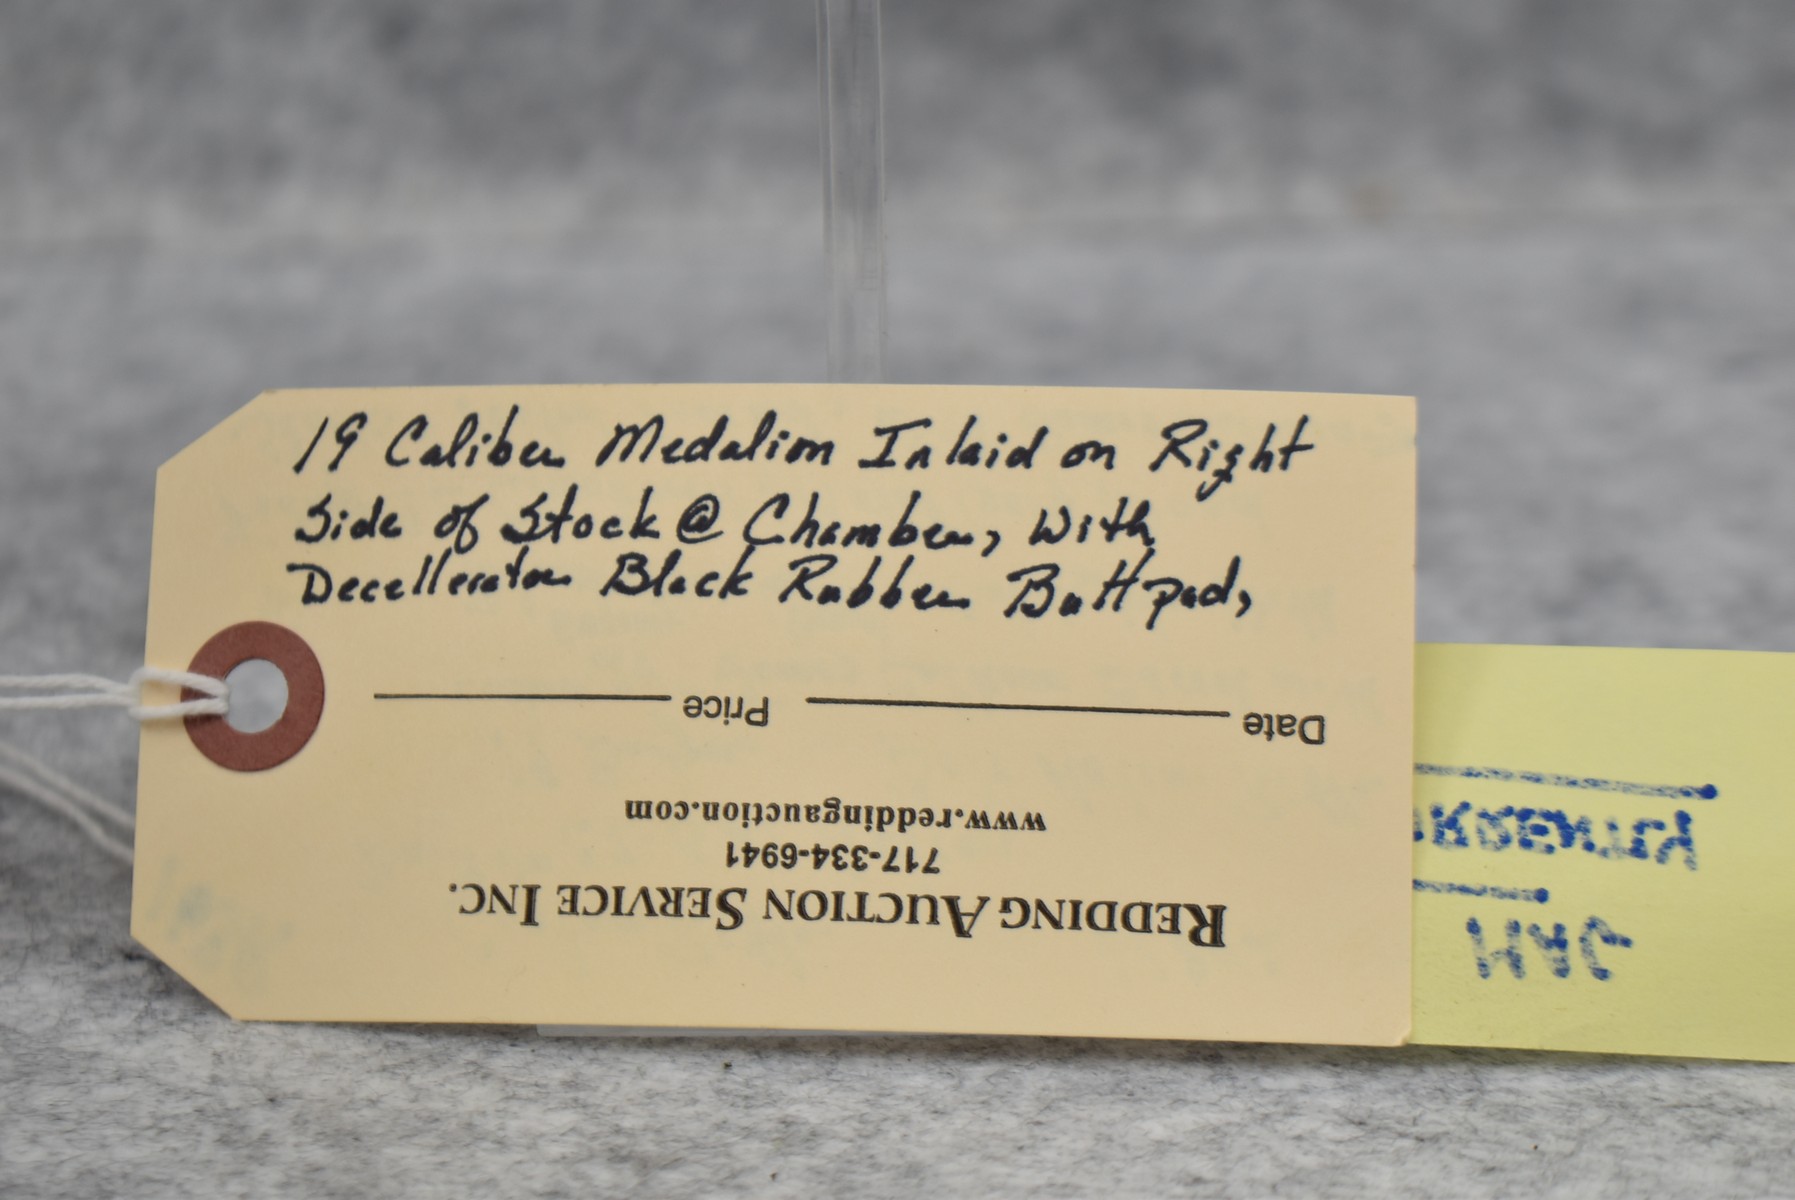 19 Caliber Medalion Inlaid on Right
Side of Stock @ Chamber, With
Decellerator Black Rubber Buttpad,
Date Price
www.reddingauction.com
717-334-6941
REDDING AUCTION SERVICE INC.
JAM